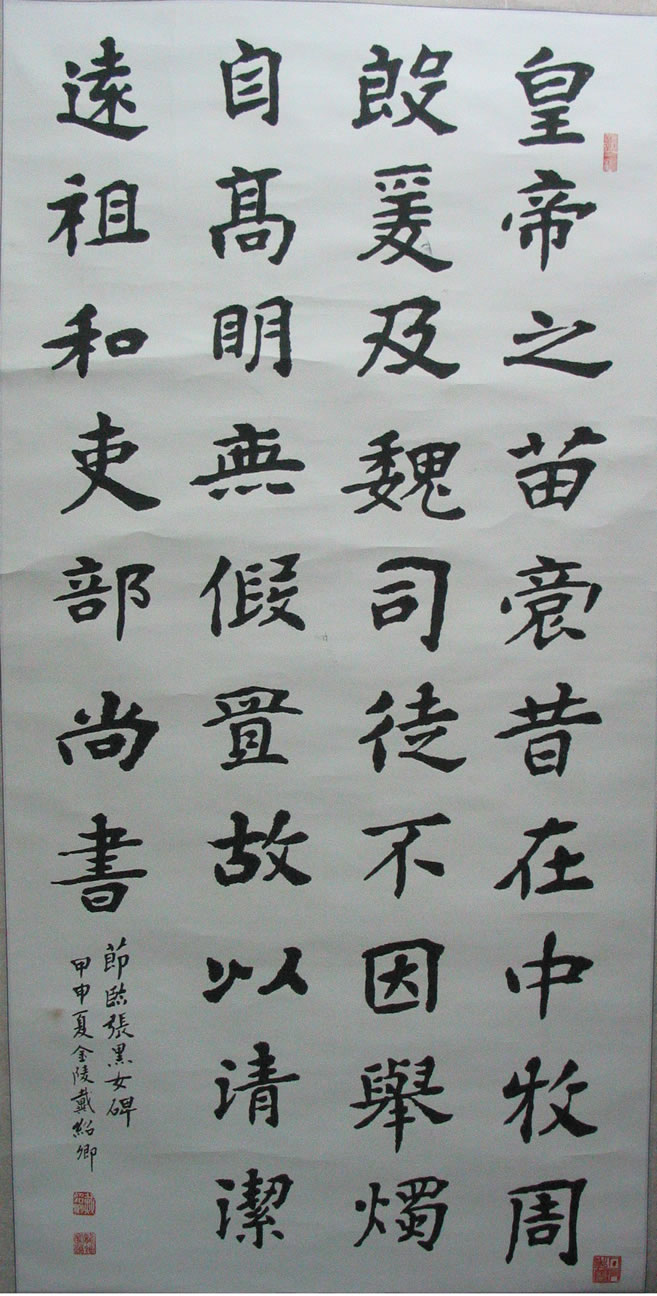 皇帝之苗裔昔在中牧周
殷爰及魏司徒不因舉燭
自高明無假置故以清潔
遠祖和吏部尚書
節臨張黑女碑
甲申夏金陵戴紹卿